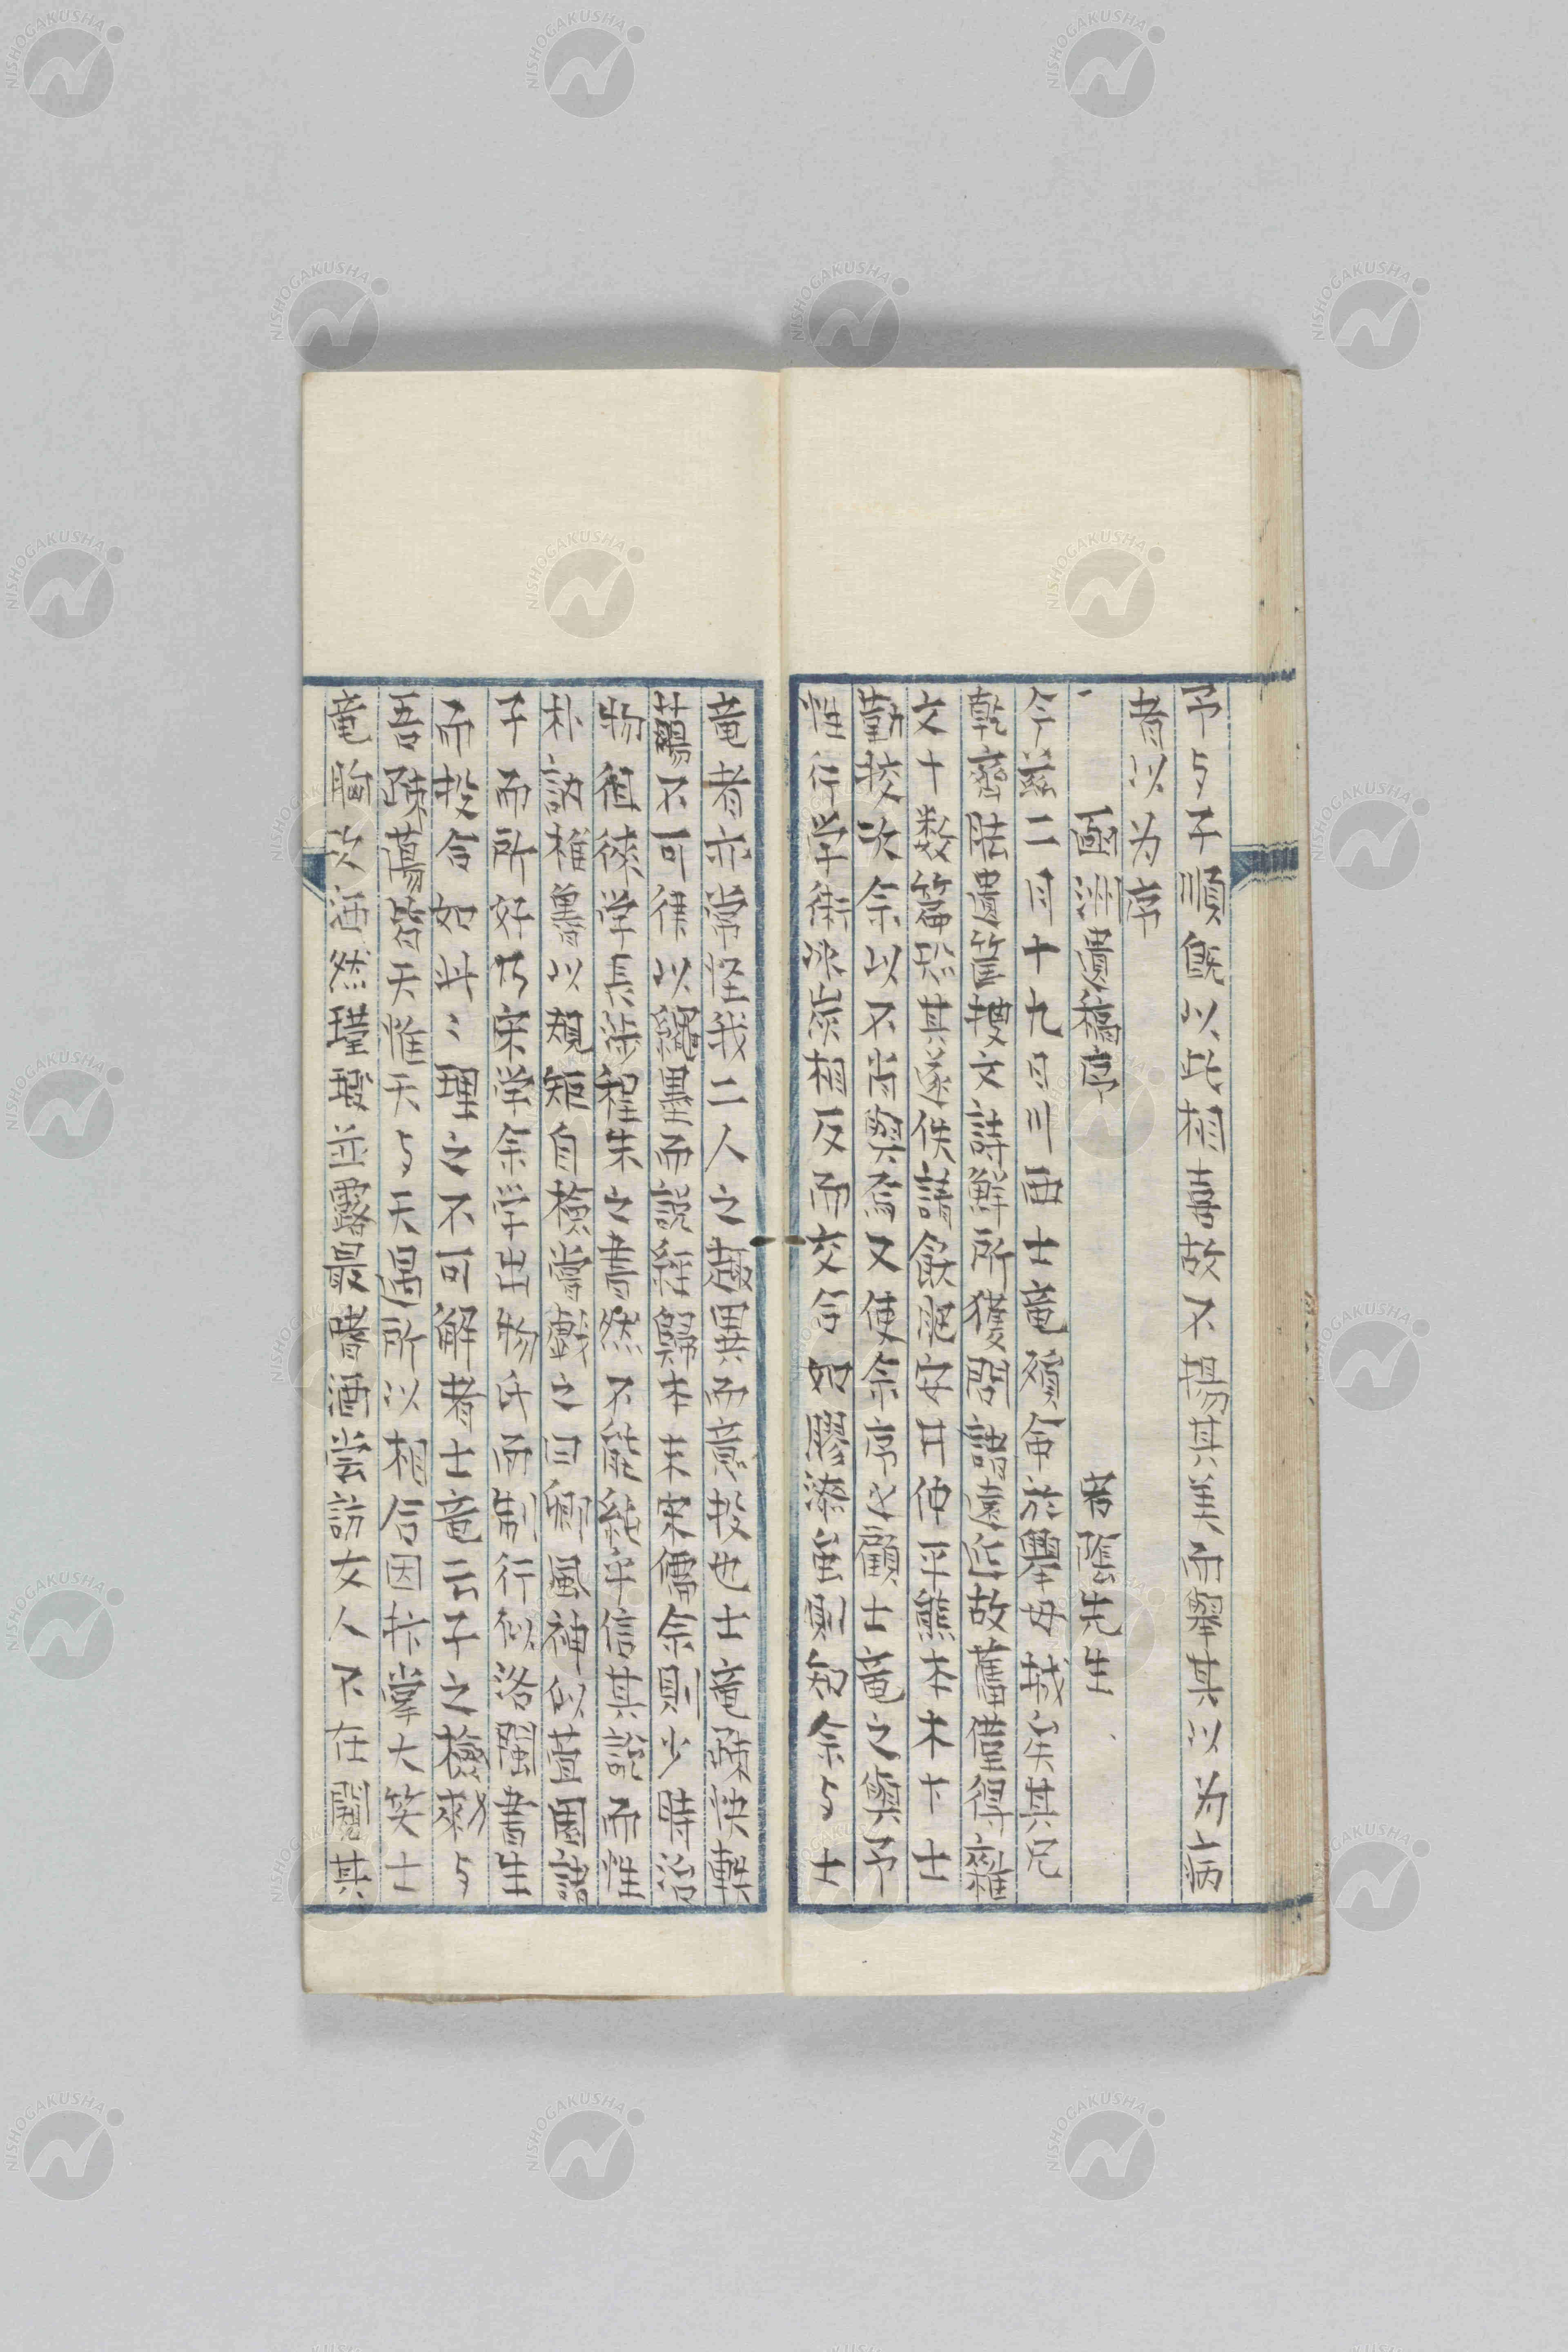 予与子順既以此相喜故不揚其美而擧其以为病
者以为序
凾洲遺稿序 若陰先生
今茲二月十九日川西士竜殞命於輿母城矣其兄
乾齋胠遺筐捜文詩鮮所獲罔諸遠近故舊僅得雜
文十数篇恐其遂佚請飫肥安井仲平熊本木下士
勤挍次余以不肖與焉又使余序之顧士竜之與予
性行学術氷炭相反而交合如膠漆虽則知余与士
竜者亦常怪我二人之趣異而意投也士竜疎快軼
蕩不可律以繩墨而説經歸本末宋儒余則少時治
物徂徠学長渉程朱之書然不能純乎信其説而性
朴訥椎魯以規矩自檢嘗戲之曰卿風神似萱園諸
子而所好乃宋学余学出物氏而制行似洛閩書生
而投合如此〻理之不可解者士竜云子之檢勑与
吾疎蕩皆天惟天与天遇所以相合因抃掌大笑士
竜胸次洒然瑾瑕並露最嗜酒嘗訪友人不在闖其
NISHOGAKUSHA